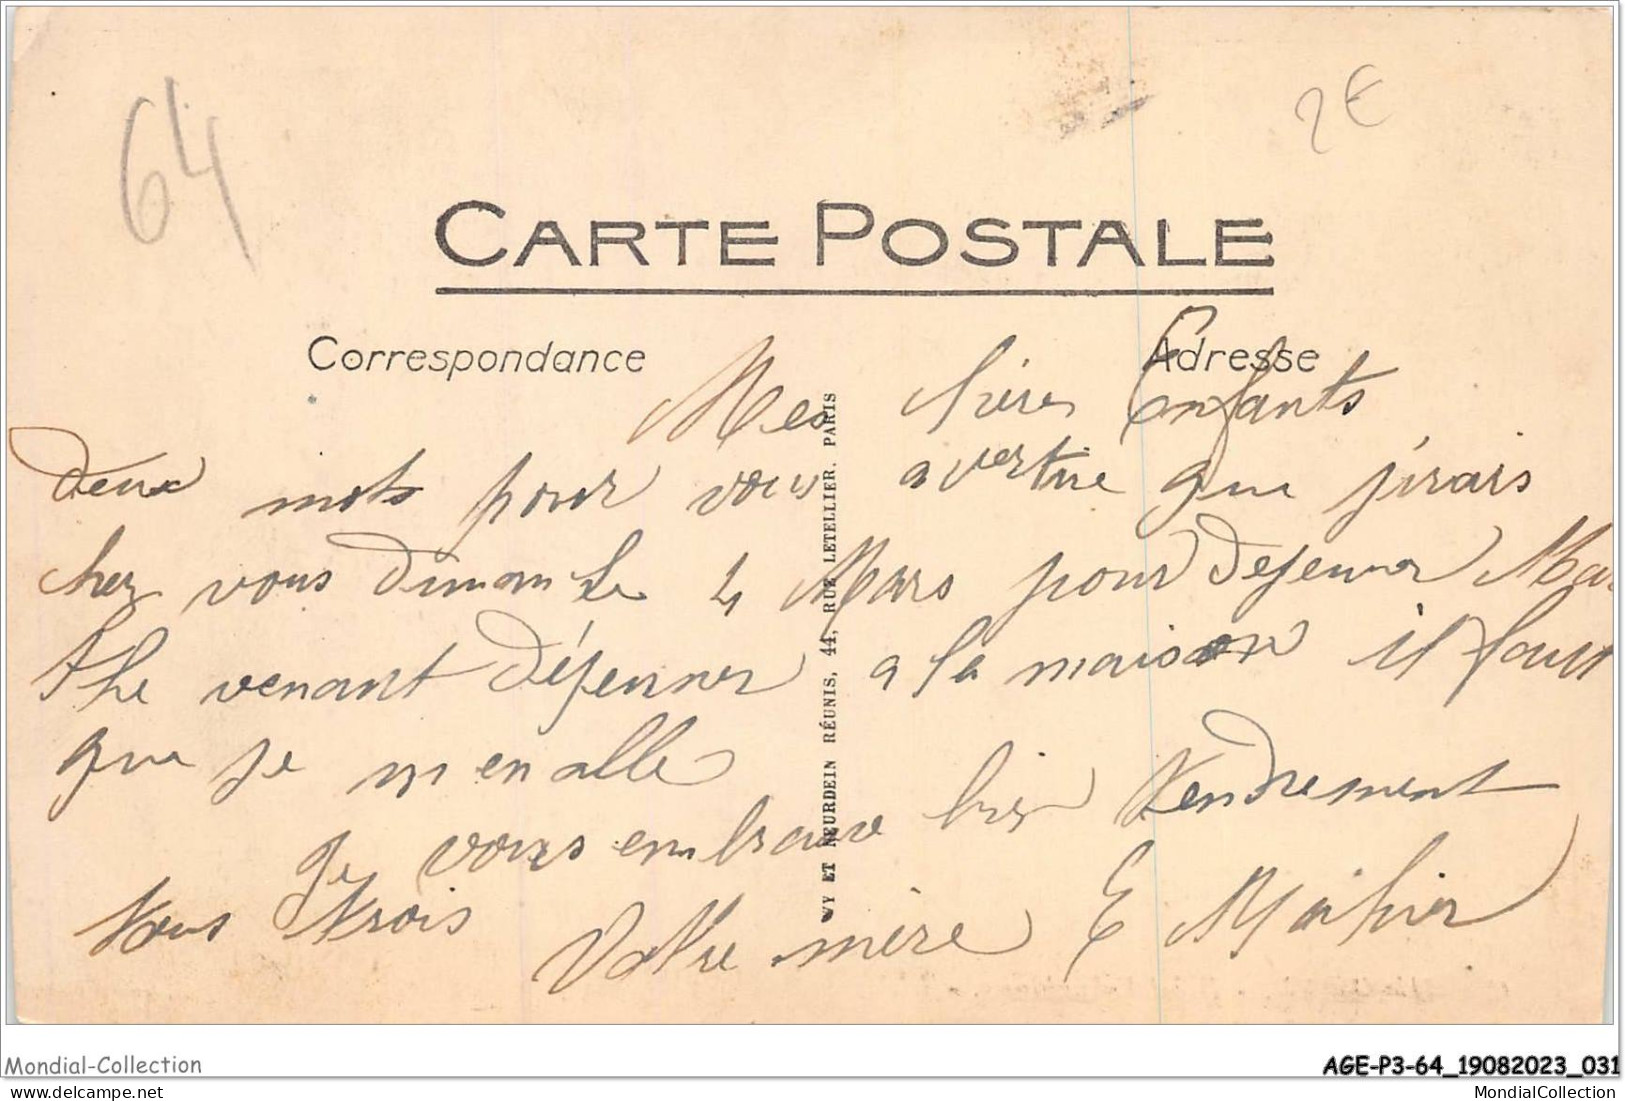 64
2€
CARTE POSTALE
Correspondance
Adresse
Mes chères Enfants
deux mots pour vous avertire que j'irais
chez vous dimanche 4 Mars pour dejeuner Mar
the venant déjeuner a la maison il faut
que je m en alle
je vous embrasse bien tendrement
tous trois Votre mère E
VY ET NEURDEIN RÉUNIS, 44, RUE LETELLIER, PARIS
Mondial-Collection
AGE-P3-64_19082023_031
MondialCollection